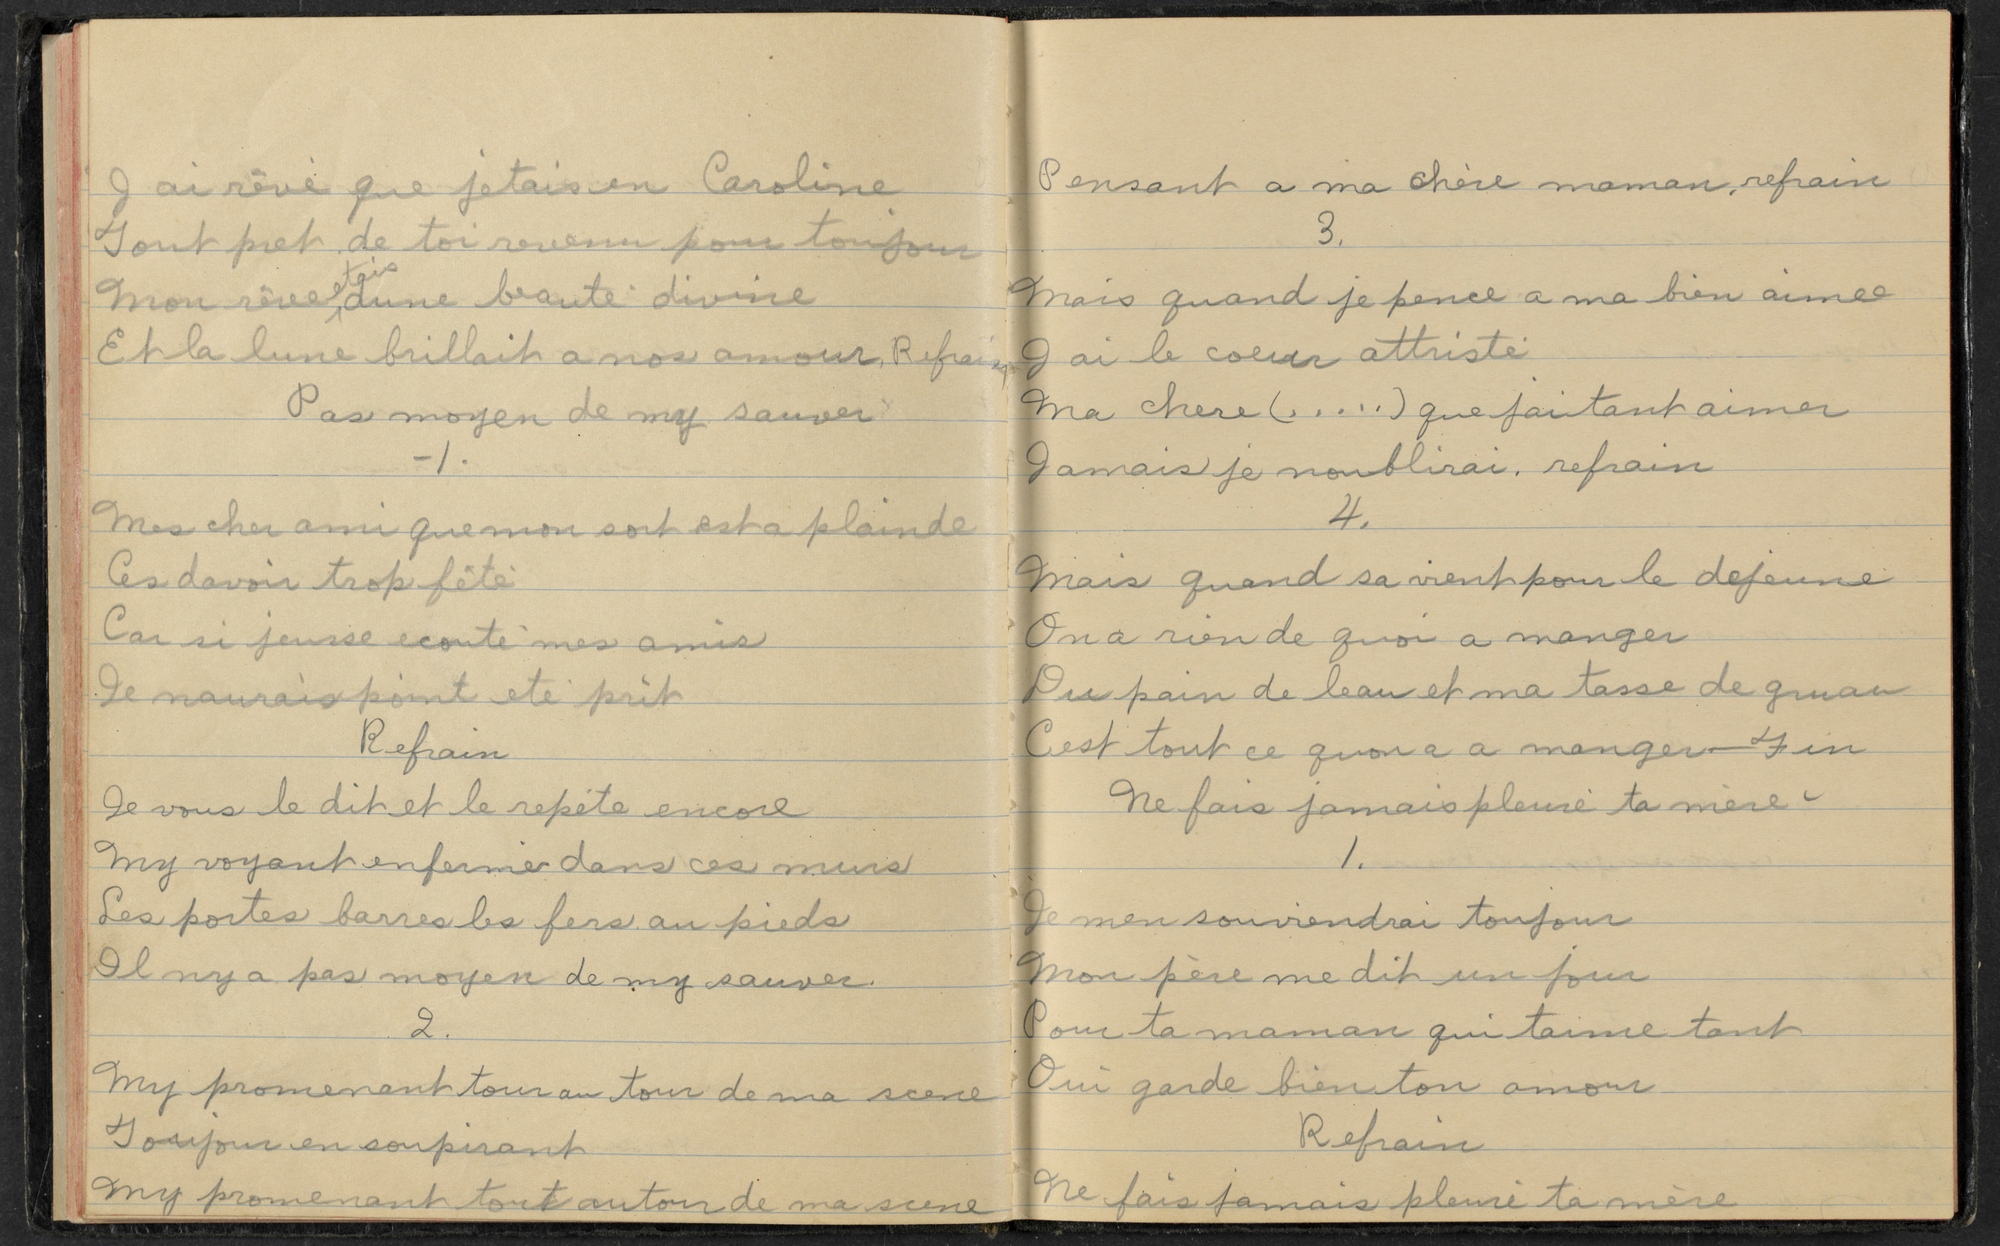 J ai rêvé que jetais en Caroline
Tout pret de toi revenu pour toujour
Mon rêve etais dune beauté divine
Et la lune brillait a nos amour, Refrain
Pas moyen de my sauver
-1.
Mes cher ami que mon sort est a plainde
Ces davoir trop fêté
Car si jeusse ecouté mes amis
Je naurais point eté prit
Refrain
Je vous le dit et le repéte encore
My voyant enfermer dans ces murs
Les portes barres les fers au pieds
Il ny a pas moyen de my sauver.
2.
My promenant tour au tour de ma scene
Toujour en soupirant
My promenant tout autour de ma scene
Pensant a ma chère maman, refrain
3.
Mais quand je pence a ma bien aimee
J ai le coeur attristé
Ma chere (.....) que jai tant aimer
Jamais je noublirai. refrain
4.
Mais quand sa vient pour le dejeune
On a rien de quoi a manger
Du pain de leau et ma tasse de gruau
Cest tout ce quon a a manger — Fin
Ne fais jamais pleuré ta mère
1.
Je men souviendrai toujour
Mon père me dit un jour
Pour ta maman qui taime tant
Oui garde bien ton amour
Refrain
Ne fais jamais pleuré ta mère